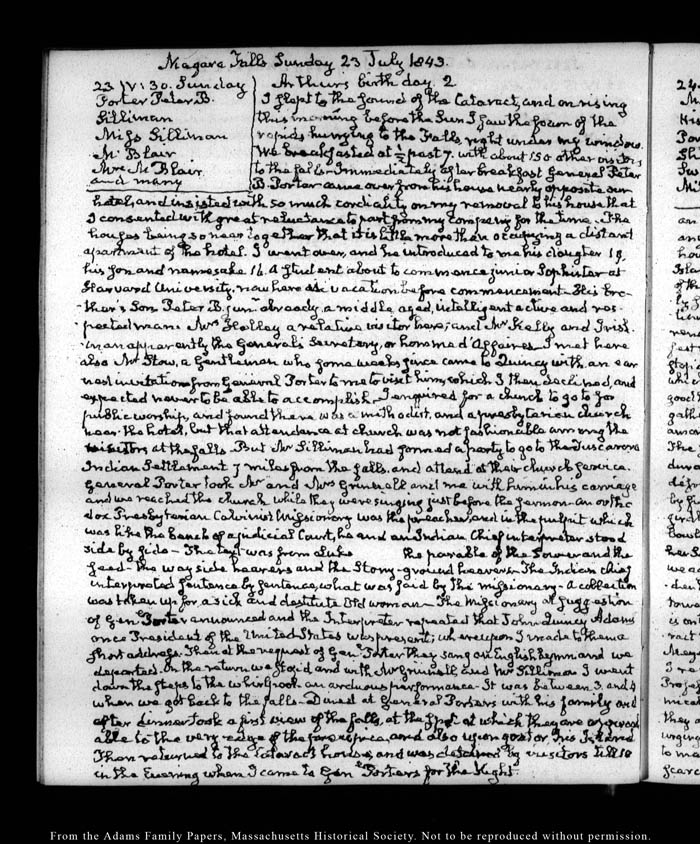 Niagara Falls Sunday 23 July 1843.
23. IV:30. Sunday
Porter Peter B.
Silliman
Miss Silliman
Mr Blair
Mrs McBlair
and many
Arthur's birth day. 2
I slept to the sound of the Cataract, and on rising
this morning before the Sun I saw the foam of the
rapids hurrying to the Falls, right under my window.
We breakfasted at ½ past 7. with about 150 other visitors
to the falls—Immediately after breakfast General Peter
B. Porter came over from his house nearly opposite our
hotel, and insisted with so much cordiality on my removal to his house that
I consented with great reluctance to part from my company for the time. The
houses being so near together that it is little more than occupying a distant
apartment of the hotel. I went over, and he introduced to me his daughter 19.
his son and namesake 16. a Student about to commence junior Sophister at
Harvard University. now here in vacation before commencement—His bro-
ther's Son Peter B. junr already a middle aged, intelligent active and res-
pected man. Mrs Holley a relative visitor here, and Mr Kelly and Irish-
man apparently the General's Secretary, or homme d'affaires. I met here
also Mr Stow, a Gentleman who some weeks since came to Quincy with an ear
nest invitation from General Porter to me to visit him, which I then declined, and
expected never to be able to accomplish. I enquired for a church to go to for
public worship, and found there was a methodist, and a presbyterian church
near the hotel, but that attendance at church was not fashionable among the
visitors at the falls—But Mr Silliman had formed a party to go to the Tuscarora
Indian Settlement 7 miles from the falls, and attend at their church service.
General Porter took Mr and Mrs Grinnell and me with him in his carriage
and we reached the church while they were singing just before the sermon—An ortho
dox Presbyterian Calvinist Missionary was the preacher, and in the pulpit which
was like the bench of a judicial Court, he and an Indian Chief interpreter stood
side by side—The text was from Luke the parable of the Sower and the
seed—the way side hearers and the Stony-ground hearers—The Indian Chief
interpreted sentence by sentence, what was said by the missionary—A collection
was taken up for a sick and destitute old woman—The Missionary at suggestion
of Genl Porter announced and the Interpreter repeated that John Quincy Adams
once President of the United States was present; whereupon I made to them a
short address. Then at the request of Genl Porter they sang an English hymn and we
departed. On the return we stop'd and with Mr Grinnell and Mr Silliman I went
down the steps to the whirlpool—an arduous performance—It was between 3 and 4
when we got back to the falls—Dined at General Porters with his family and
after dinner took a first view of the falls, at the spot at which they are approach
able to the very edge of the precipice, and also upon goat or Iris Island
Then returned to the Cataract house, and was detained by visitors till 10
in the Evening when I came to Genl Porters for the Night.
24.
From the Adams Family Papers, Massachusetts Historical Society. Not to be reproduced without permission.